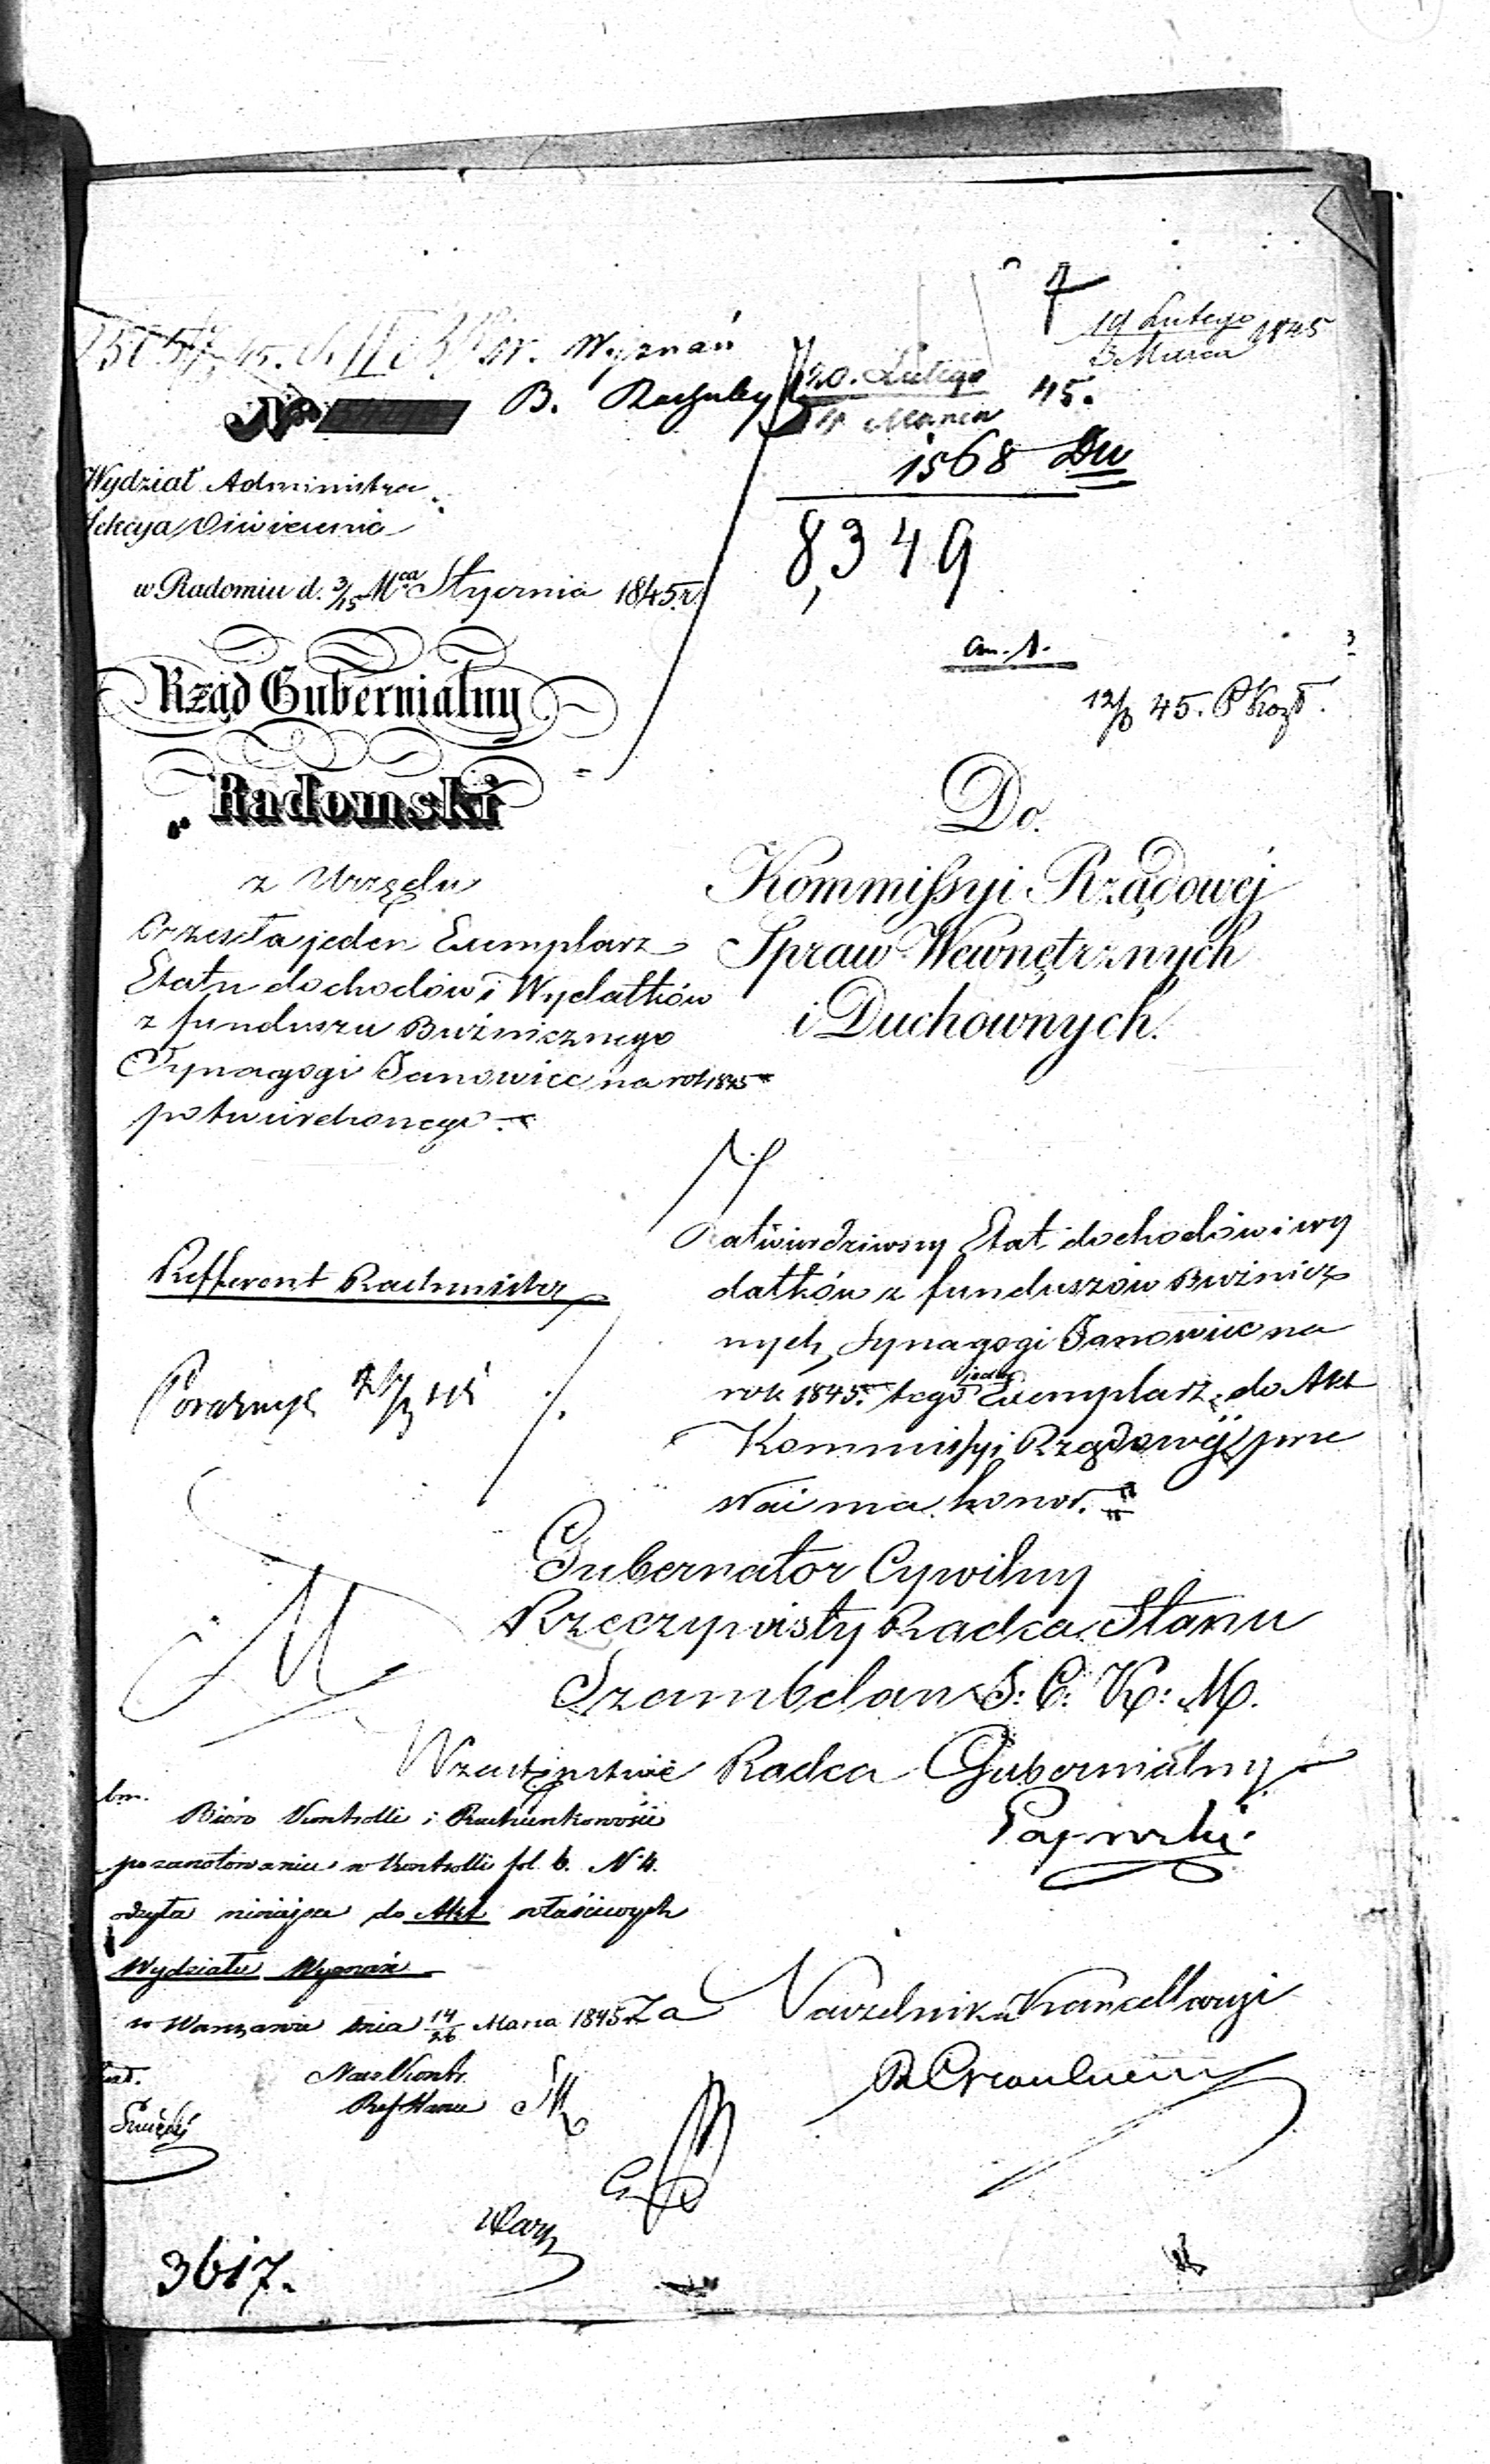 19 Lutego
3 Marca 1845
Wyznań
B. Rachuby
20. Lutego
4 Marca 45.
1568 Du
8,349
No
Wydział Administra
Sekcya Oświecenia
w Radomiu d. 3/15 Mca Stycznia 1845 r.
12/3 45.
Rząd Gubernialny
Radomski
Do
Kommissyi Rządowej
Spraw Wewnętrznych
i Duchownych.
z Urzędu
Przesyła jeden Exemplarz
Etatu dochodów i Wydatków
z funduszu Bużnicznego
Synagogi Janowiec na rok 1845
potwierdzonego
Zatwierdziwszy Etat dochodów i wy
datków z funduszów Bużnicz
nych Synagogi Janowiec na
rok 1845. tego jeden Exemplarz do Akt
Kommissyi Rządowej prze
słać ma honor.
Refferent Rachmistrz
Gubernator Cywilny
Rzeczywisty Radca Stanu
Szambelan J: C: K: M.
W zastępstwie Radca Gubernialny
Biuro Kontrolli i Rachunkowości
po zanotowaniu w Kontrolli fol. 6. N 4.
odsyła niniejsze do Akt właściwych
Wydziału Wyznań
w Warszawie dnia 14/26 Marca 1845
Za Naczelnika Kancellaryi
Nacz Kontr.
3617.